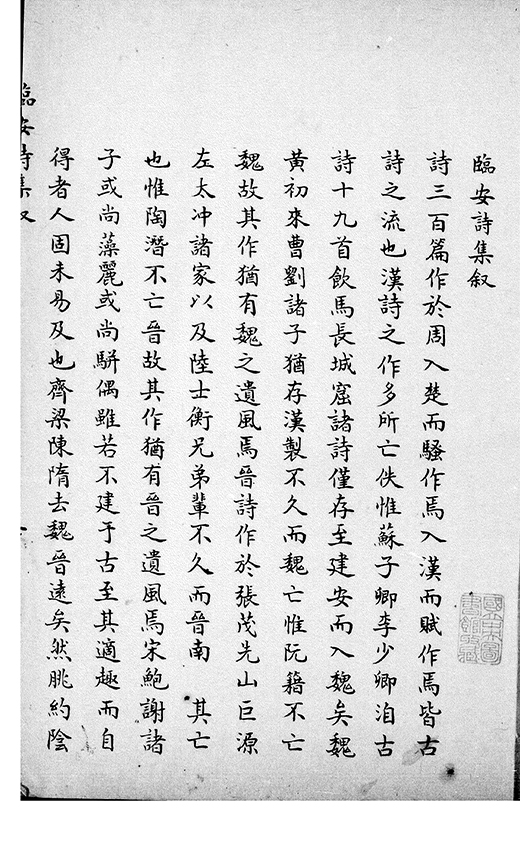 臨安詩集叙
詩三百篇作於周入楚而騷作焉入漢而賦作焉皆古
詩之流也漢詩之作多所亡佚惟蘇子卿李少卿洎古
詩十九首飲馬長城窟諸詩僅存至建安而入魏矣魏
黄初來曹劉諸子猶存漢製不久而魏亡惟阮籍不亡
魏故其作猶有魏之遺風焉晉詩作於張茂先山巨源
左太冲諸家以及陸士衡兄弟輩不久而晉南 其亡
也惟陶潛不亡晉故其作猶有晉之遺風焉宋鮑謝諸
子或尚藻麗或尚駢偶雖若不建于古至其適趣而自
得者人固未易及也齊梁陳隋去魏晉遠矣然朓約陰
臨安詩集叙